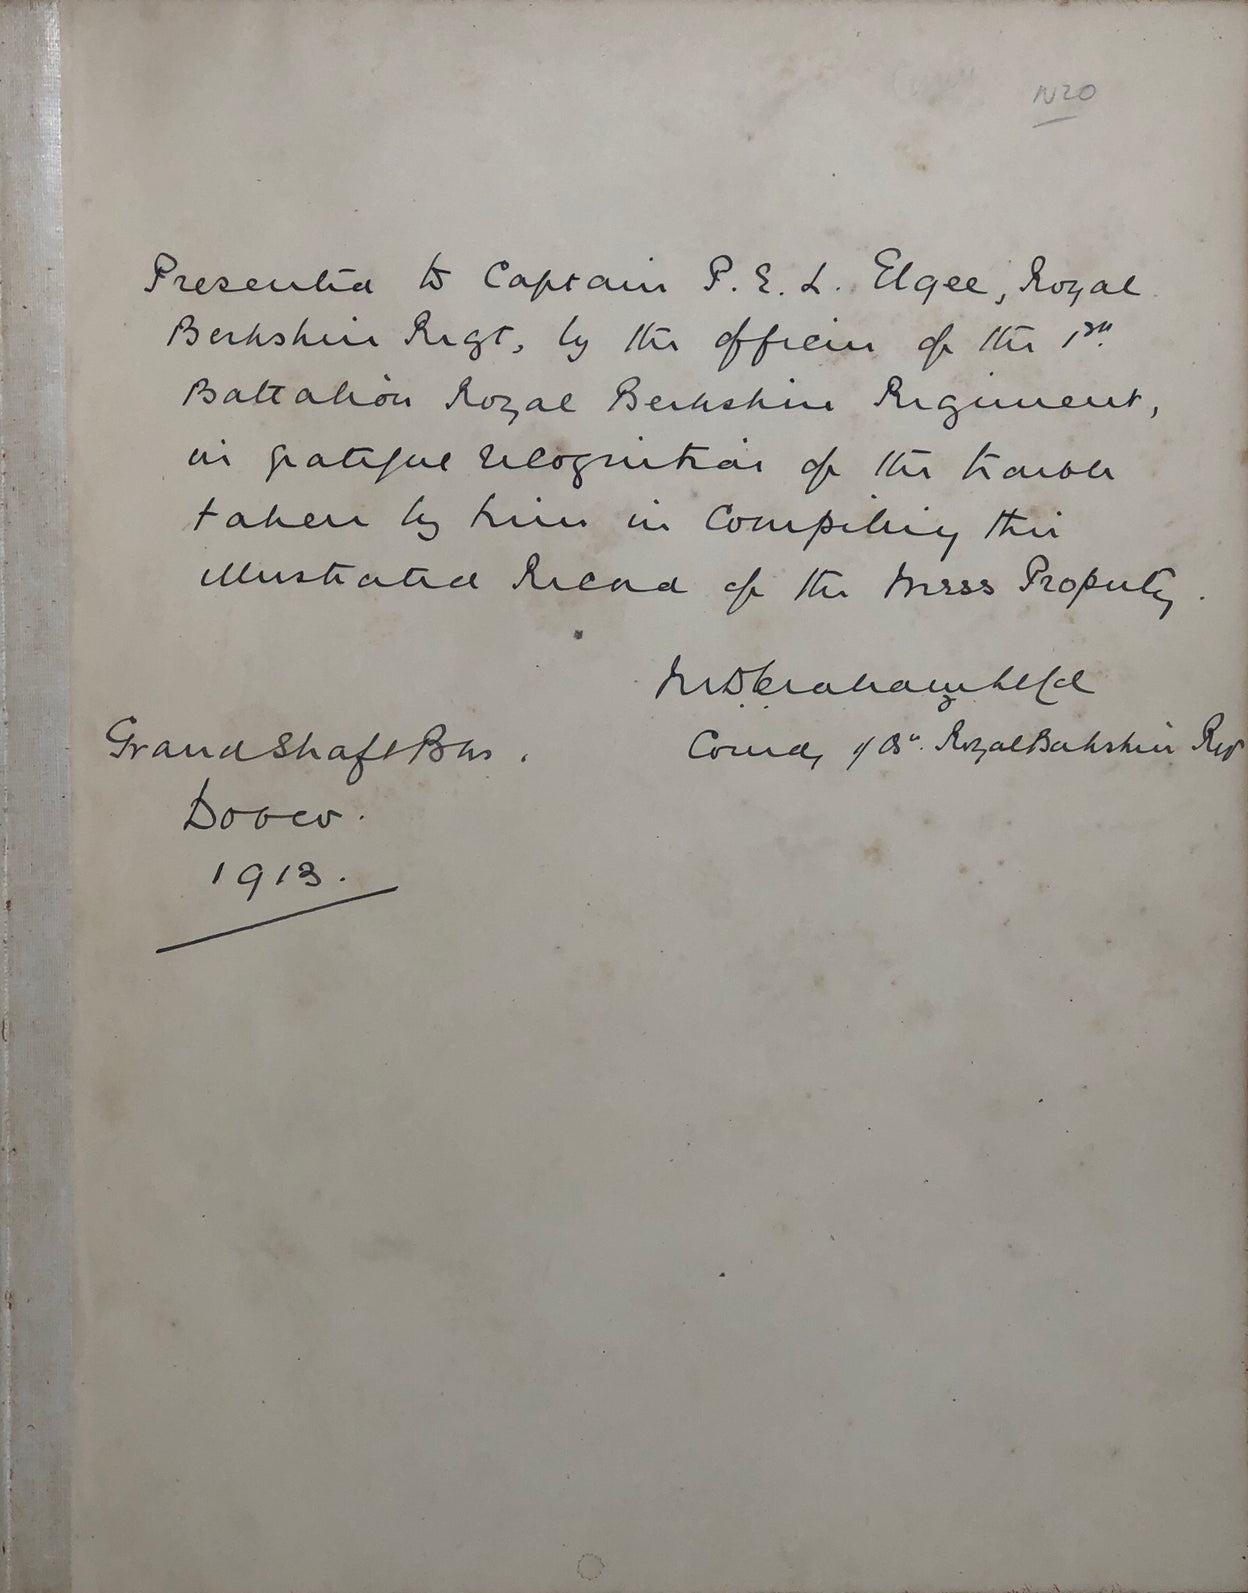 N20
Presented to Captain P. E. L. Elgee, Royal
Berkshire Regt, by the officers of the 1st
Battalion Royal Berkshire Regiment,
in grateful recognition of the trouble
taken by him in compiling this
illustrated Record of the Mess Property.
Lt Col
Comdg 1/Bn. Royal Berkshire Regt
Grand Shaft Bks.
Dover.
1913.